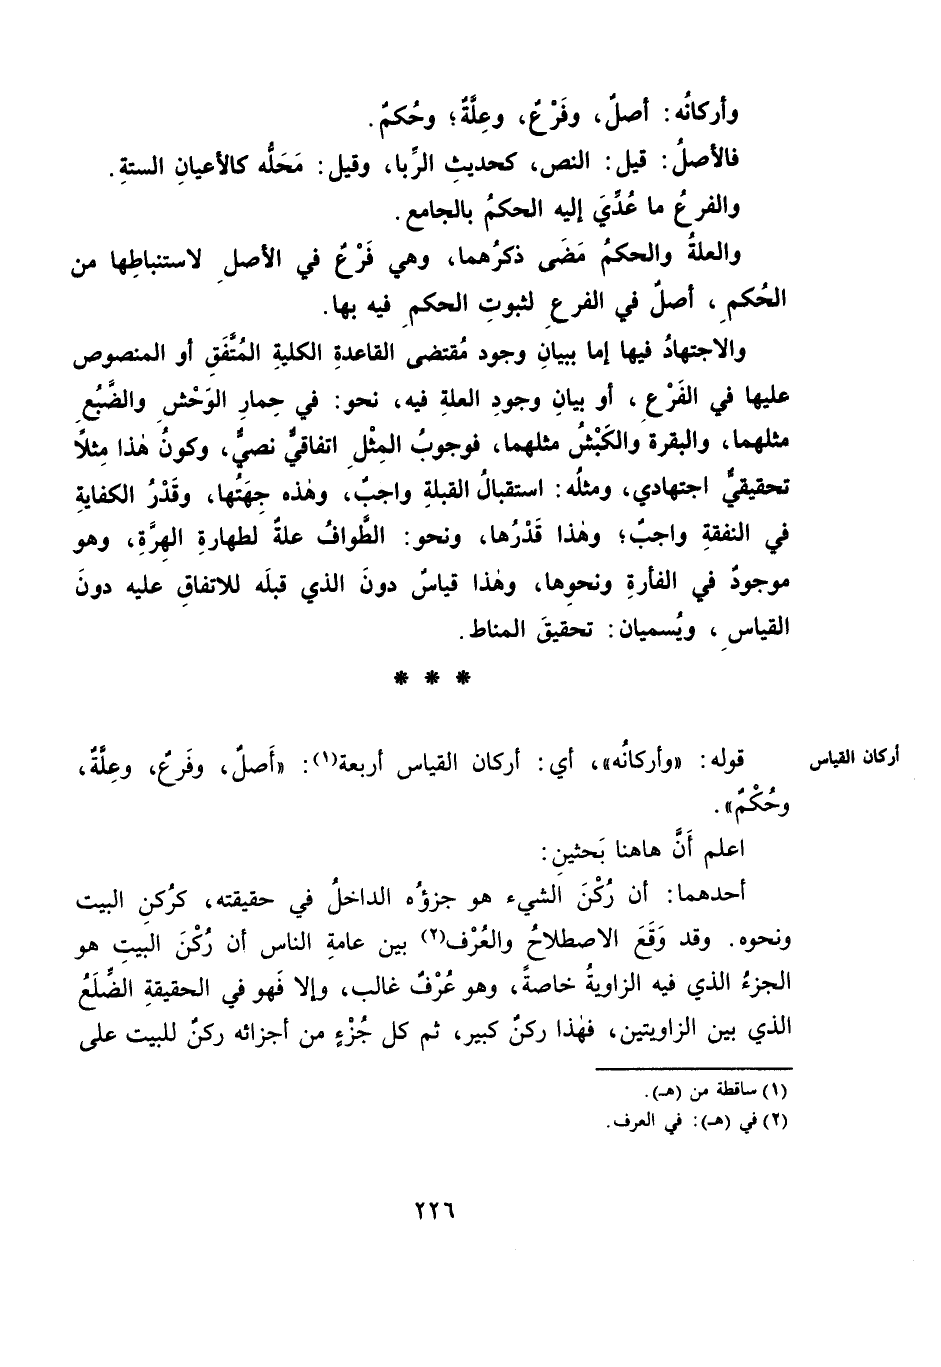 وأركانُه: أصلٌ، وفَرْعٌ، وعِلَّةٌ؛ وحُكمٌ.
فالأصلُ: قيل: النص، كحديثِ الرِّبا، وقيل: مَحَلُّه كالأعيانِ الستةِ.
والفرعُ ما عُدِّيَ إليه الحكمُ بالجامع.
والعلةُ والحكمُ مَضَى ذكرُهما، وهي فَرْعٌ في الأصلِ لاستنباطِها من
الحُكمِ، أصلٌ في الفرعِ لثبوتِ الحكمِ فيه بها.
والاجتهادُ فيها إما ببيانِ وجود مُقتضى القاعدةِ الكليةِ المُتَّفَقِ أو المنصوص
عليها في الفَرْعِ، أو بيانِ وجودِ العلةِ فيه، نحو: في حِمارِ الوَحْشِ والضَّبُعِ
مثلهما، والبقرة والكَبْشُ مثلهما، فوجوبُ المِثْلِ اتفاقيٌّ نصيٌّ، وكونُ هٰذا مِثلًا
تحقيقيٌّ اجتهادي، ومثلُه: استقبالُ القبلةِ واجبٌ، وهٰذه جِهَتُها، وقَدْرُ الكفايةِ
في النفقةِ واجبٌ؛ وهٰذا قَدْرُها، ونحو: الطَّوافُ علةٌ لطهارةِ الهِرَّةِ، وهو
موجودٌ في الفأرةِ ونحوِها، وهٰذا قياسٌ دونَ الذي قبلَه للاتفاقِ عليه دونَ
القياسِ، ويُسميان: تحقيقَ المناط.
* * *
أركان القياس
قوله: «وأركانُه»، أي: أركان القياس أربعة(١): «أَصلٌ، وفَرعٌ، وعِلَّةٌ،
وحُكْمٌ».
اعلم أَنَّ هاهنا بَحثينِ:
أحدهما: أن رُكْنَ الشيء هو جزؤُه الداخلُ في حقيقته، كرُكنِ البيت
ونحوه. وقد وَقَعَ الاصطلاحُ والعُرْف(٢) بين عامةِ الناس أن رُكْنَ البيتِ هو
الجزءُ الذي فيه الزاويةُ خاصةً، وهو عُرْفٌ غالب، وإلا فَهو في الحقيقةِ الضِّلَعُ
الذي بين الزاويتين، فهٰذا ركنٌ كبير، ثم كل جُزْءٍ من أجزائه ركنٌ للبيت على
(١) ساقطة من (هـ).
(٢) في (هـ): في العرف.
٢٢٦